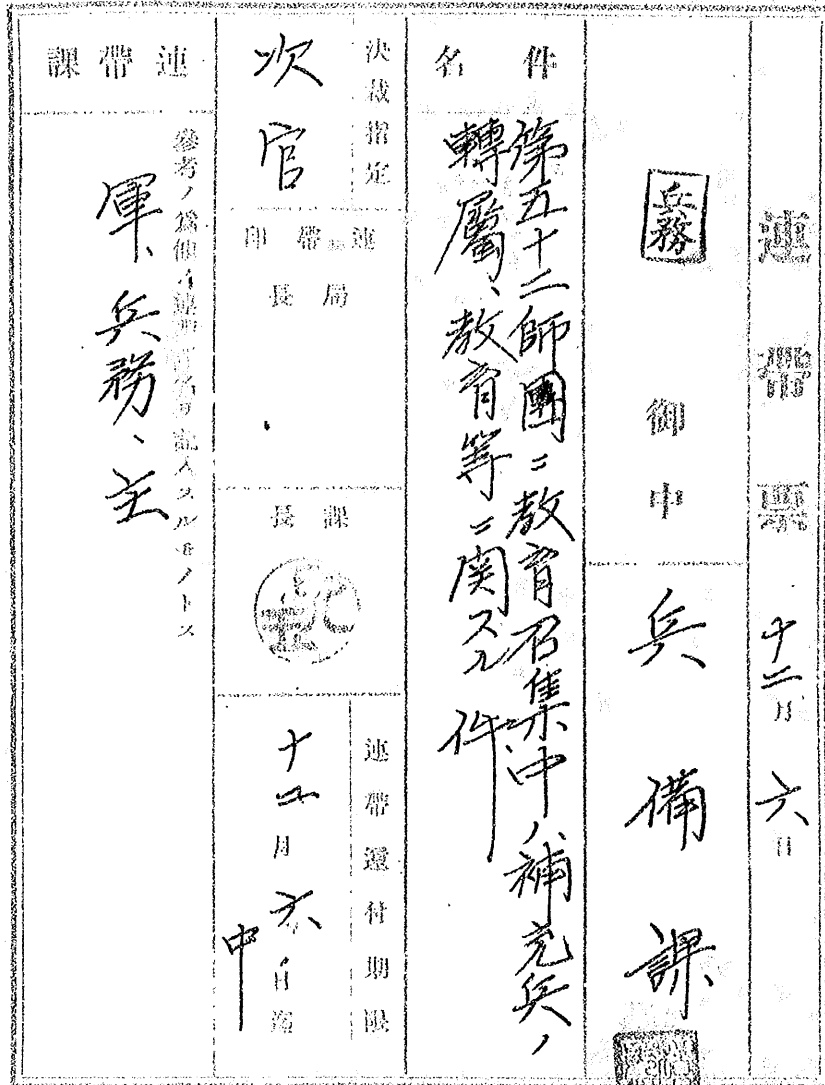 連帶票 十二月六日
兵務 御中 兵備課
件名
第五十二師團ニ教育召集中ノ補充兵ノ
轉屬、教育等ニ関スル件
決裁指定
次官
連帶印
局長
課長
連帶還付期限
十二月六日迄
中
連帶課
參考ノ爲他ノ連帶課名ヲ記入スルモノトス
軍、兵務、主